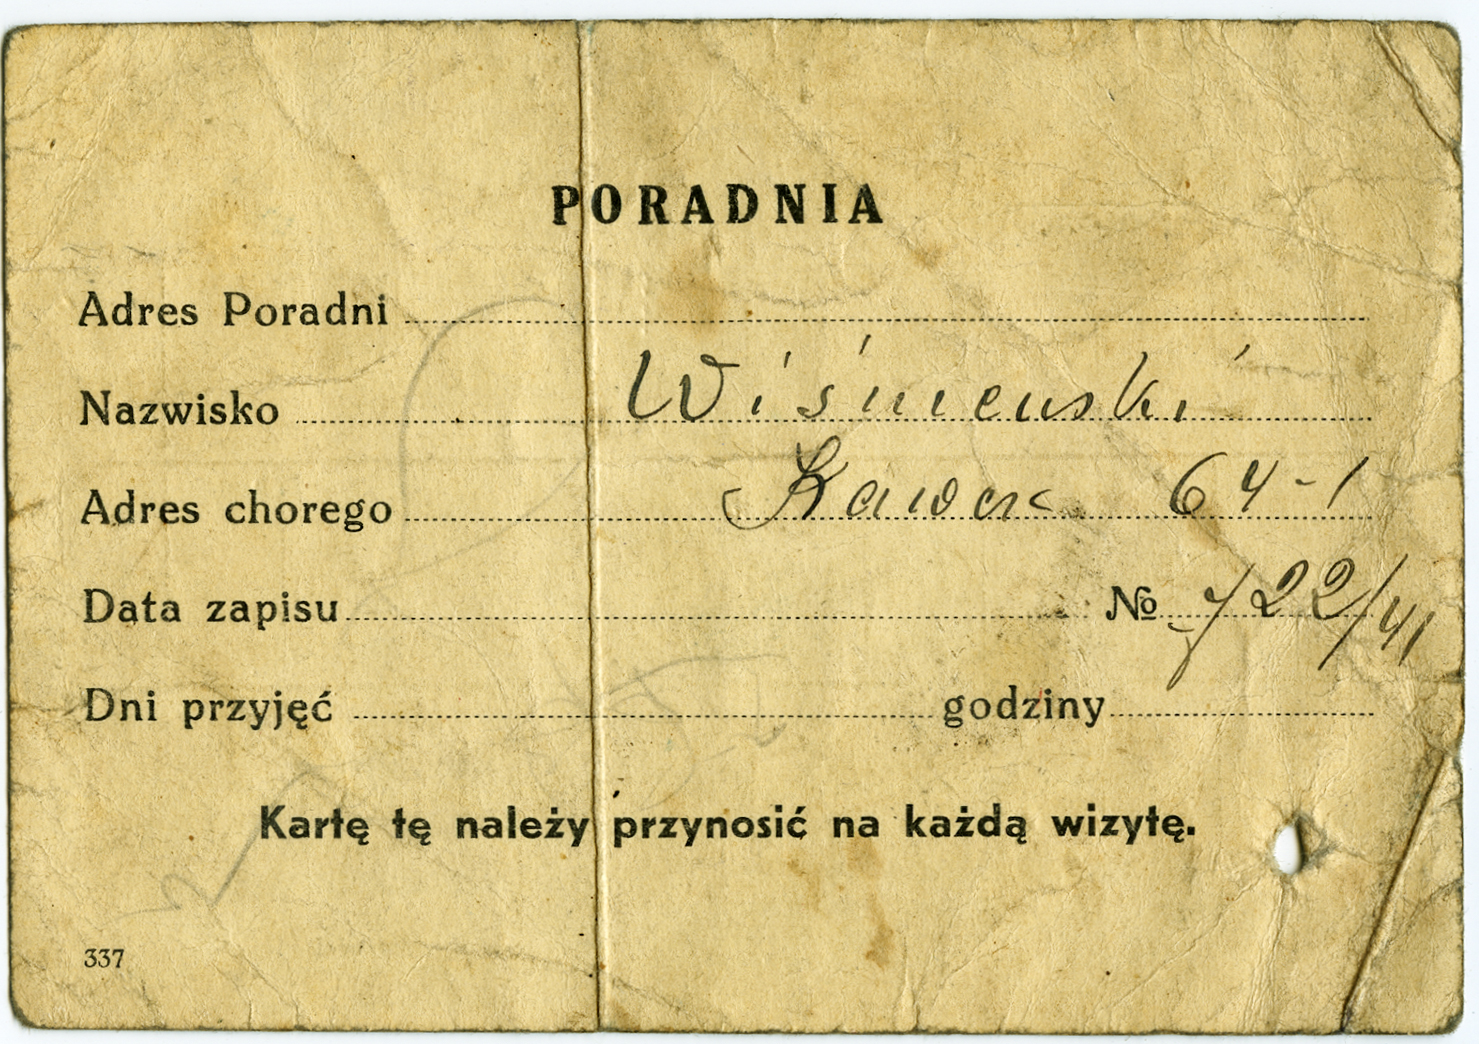 PORADNIA
Adres Poradni
Nazwisko Wiśniewski
Adres chorego 64-1
Data zapisu № 722/41
Dni przyjęć godziny
Kartę tę należy przynosić na każdą wizytę.
337